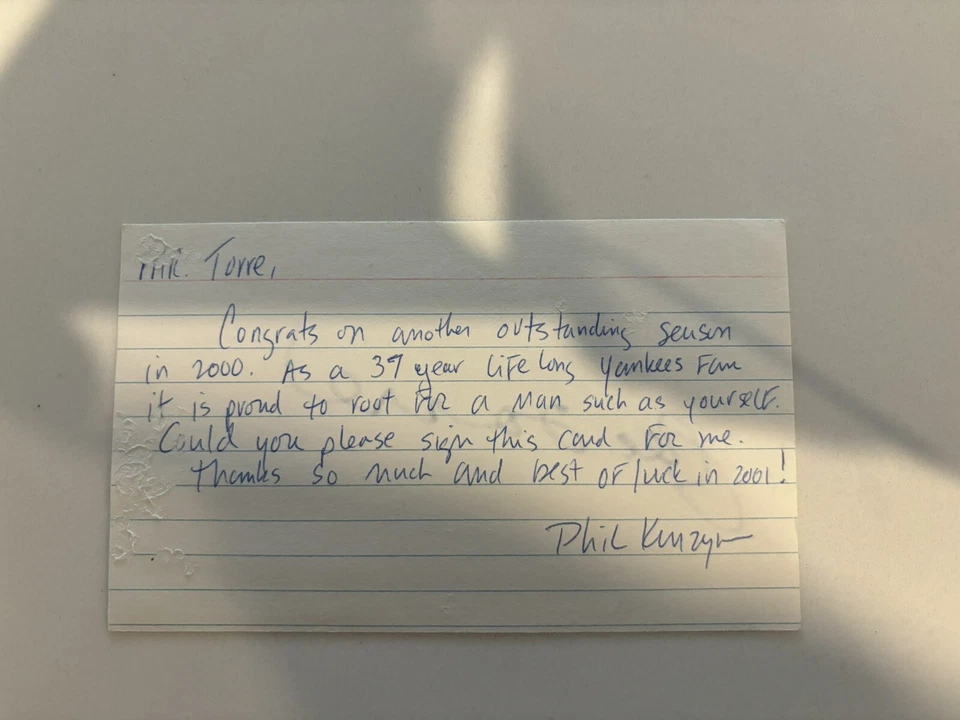 Mr. Torre,
Congrats on another outstanding season
in 2000. As a 39 year life long Yankees Fan
it is proud to root for a man such as yourself.
Could you please sign this card for me.
Thanks so much and best of luck in 2001!
Phil